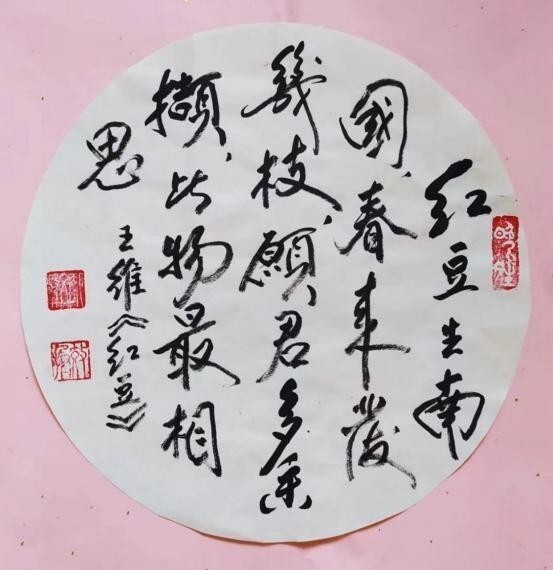 红豆生南
國、春来發
幾枝、願君多采
擷、此物最相
思
王维《红豆》